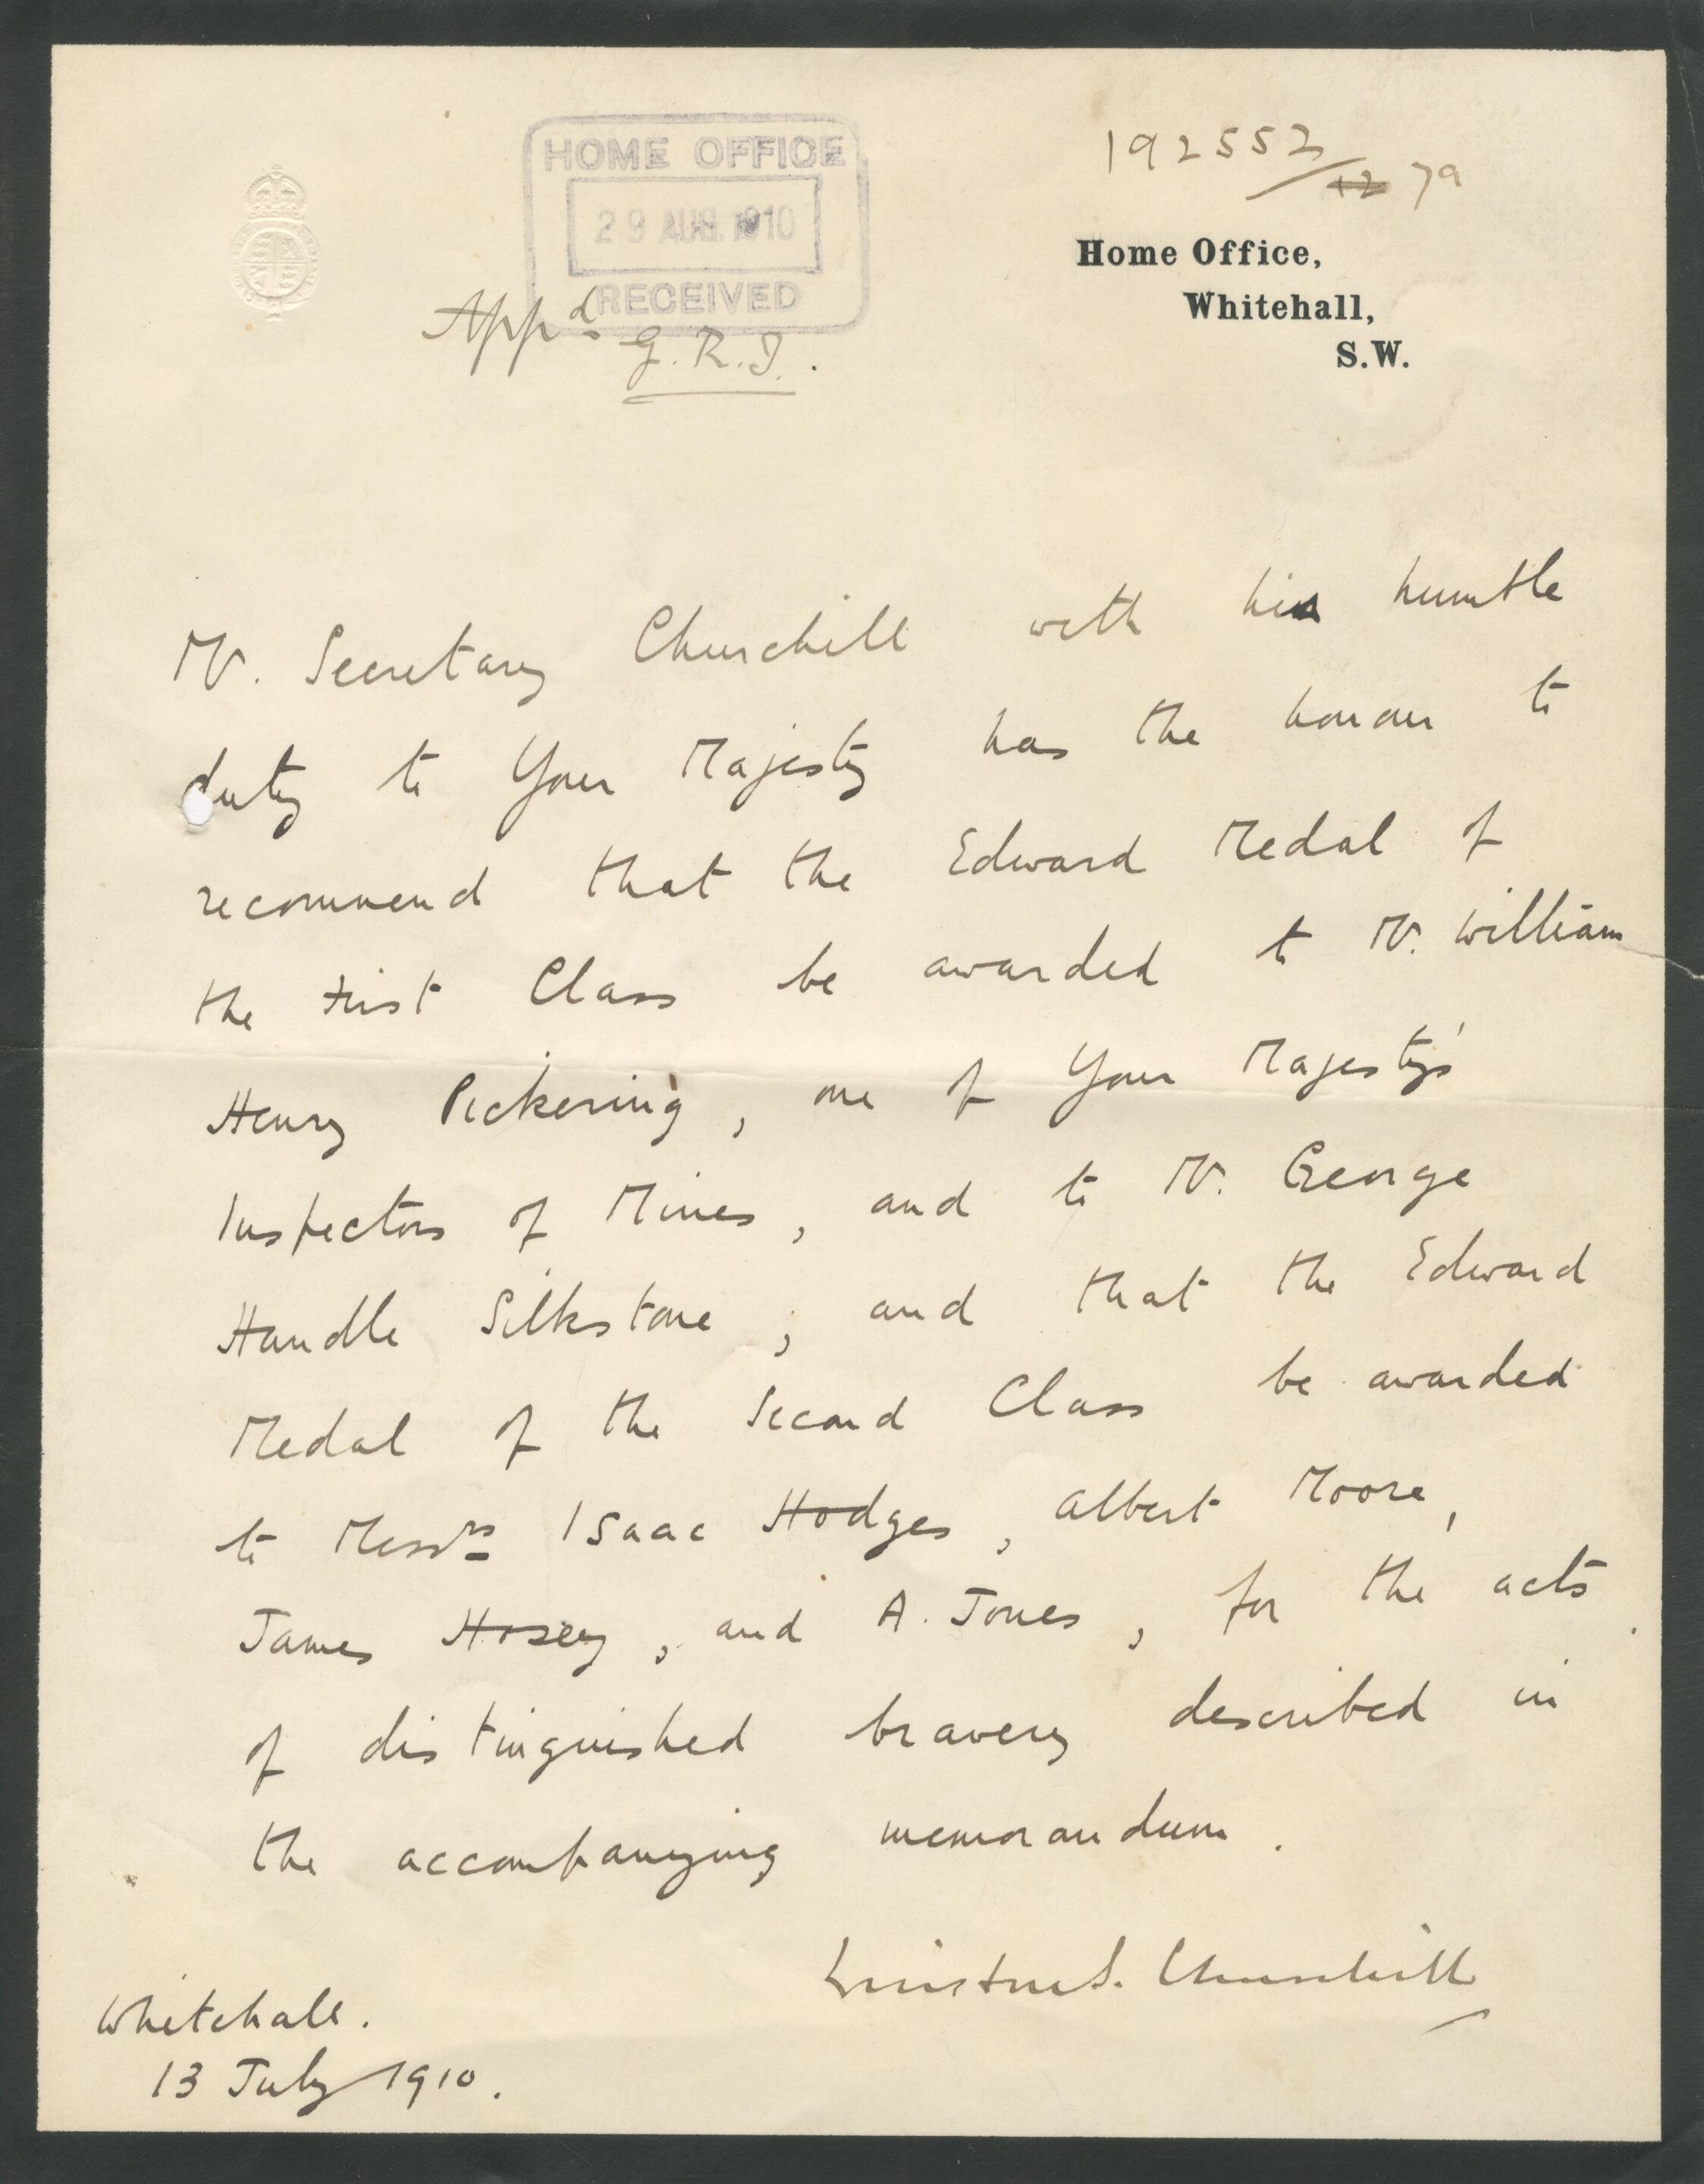 HOME OFFICE
29 AUG. 1910
RECEIVED
192552/12 79
Home Office,
Whitehall,
S.W.
Appd
G.R.I.
Mr. Secretary Churchill with his humble
duty to Your Majesty has the honour to
recommend that the Edward Medal of
the First Class be awarded to Mr. William
Henry Pickering, one of Your Majesty's
Inspectors of Mines, and to Mr. George
Handle Silkstone; and that the Edward
Medal of the Second Class be awarded
to Messrs Isaac Hodges, Albert Moore,
James Hosey, and A. Jones, for the acts
of distinguished bravery described in
the accompanying memorandum.
Winston S. Churchill
Whitehall.
13 July 1910.